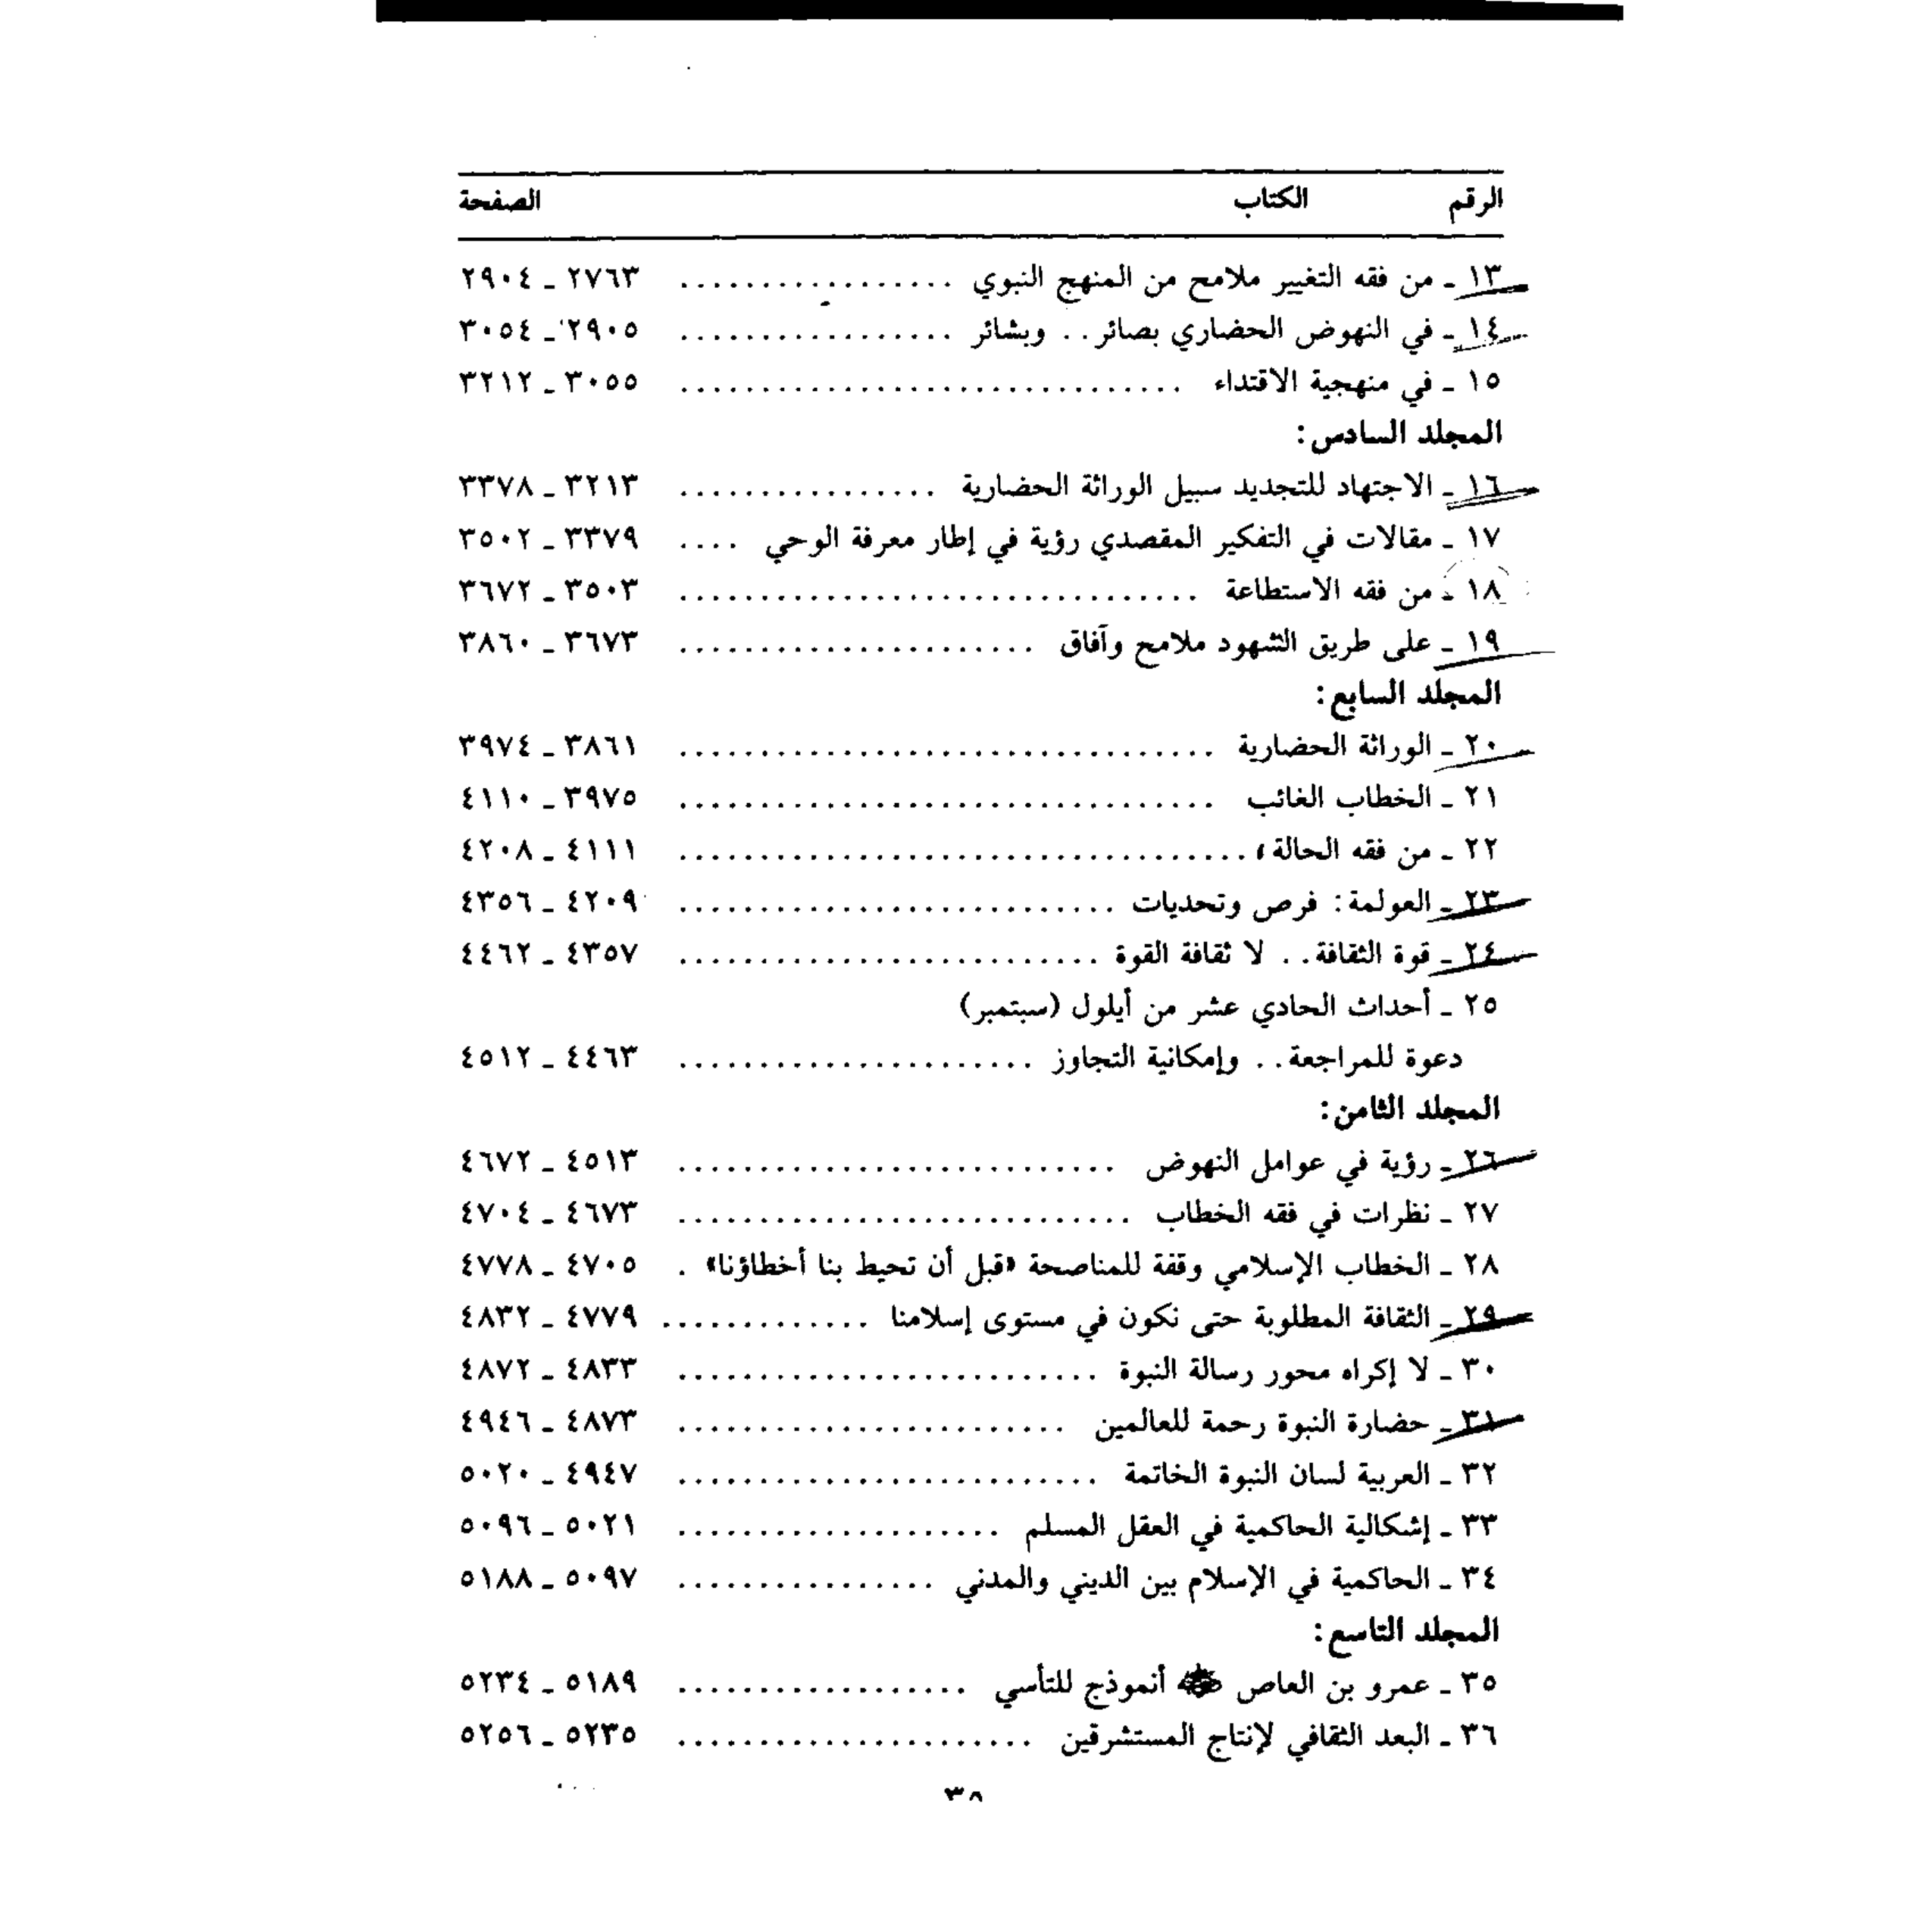 الرقم الكتاب الصفحة
١٣ ـ من فقه التغيير ملامح من المنهج النبوي ................. ٢٧٦٣ ـ ٢٩٠٤
١٤ ـ في النهوض الحضاري بصائر.. وبشائر ................. ٢٩٠٥ ـ ٣٠٥٤
١٥ ـ في منهجية الاقتداء ............................... ٣٠٥٥ ـ ٣٢١٢
المجلد السادس:
١٦ ـ الاجتهاد للتجديد سبيل الوراثة الحضارية ................ ٣٢١٣ ـ ٣٣٧٨
١٧ ـ مقالات في التفكير المقصدي رؤية في إطار معرفة الوحي .... ٣٣٧٩ ـ ٣٥٠٢
١٨ ـ من فقه الاستطاعة ................................ ٣٥٠٣ ـ ٣٦٧٢
١٩ ـ على طريق الشهود ملامح وآفاق ...................... ٣٦٧٣ ـ ٣٨٦٠
المجلد السابع:
٢٠ ـ الوراثة الحضارية ................................. ٣٨٦١ ـ ٣٩٧٤
٢١ ـ الخطاب الغائب ................................. ٣٩٧٥ ـ ٤١١٠
٢٢ ـ من فقه الحالة ................................... ٤١١١ ـ ٤٢٠٨
٢٣ ـ العولمة: فرص وتحديات ........................... ٤٢٠٩ ـ ٤٣٥٦
٢٤ ـ قوة الثقافة.. لا ثقافة القوة .......................... ٤٣٥٧ ـ ٤٤٦٢
٢٥ ـ أحداث الحادي عشر من أيلول (سبتمبر)
دعوة للمراجعة.. وإمكانية التجاوز ...................... ٤٤٦٣ ـ ٤٥١٢
المجلد الثامن:
٢٦ ـ رؤية في عوامل النهوض ........................... ٤٥١٣ ـ ٤٦٧٢
٢٧ ـ نظرات في فقه الخطاب ............................ ٤٦٧٣ ـ ٤٧٠٤
٢٨ ـ الخطاب الإسلامي وقفة للمناصحة «قبل أن تحيط بنا أخطاؤنا» . ٤٧٠٥ ـ ٤٧٧٨
٢٩ ـ الثقافة المطلوبة حتى نكون في مستوى إسلامنا ............. ٤٧٧٩ ـ ٤٨٣٢
٣٠ ـ لا إكراه محور رسالة النبوة .......................... ٤٨٣٣ ـ ٤٨٧٢
٣١ ـ حضارة النبوة رحمة للعالمين ........................ ٤٨٧٣ ـ ٤٩٤٦
٣٢ ـ العربية لسان النبوة الخاتمة .......................... ٤٩٤٧ ـ ٥٠٢٠
٣٣ ـ إشكالية الحاكمية في العقل المسلم .................... ٥٠٢١ ـ ٥٠٩٦
٣٤ ـ الحاكمية في الإسلام بين الديني والمدني ................ ٥٠٩٧ ـ ٥١٨٨
المجلد التاسع:
٣٥ ـ عمرو بن العاص أنموذج للتأسي .................. ٥١٨٩ ـ ٥٢٣٤
٣٦ ـ البعد الثقافي لإنتاج المستشرقين ...................... ٥٢٣٥ ـ ٥٢٥٦